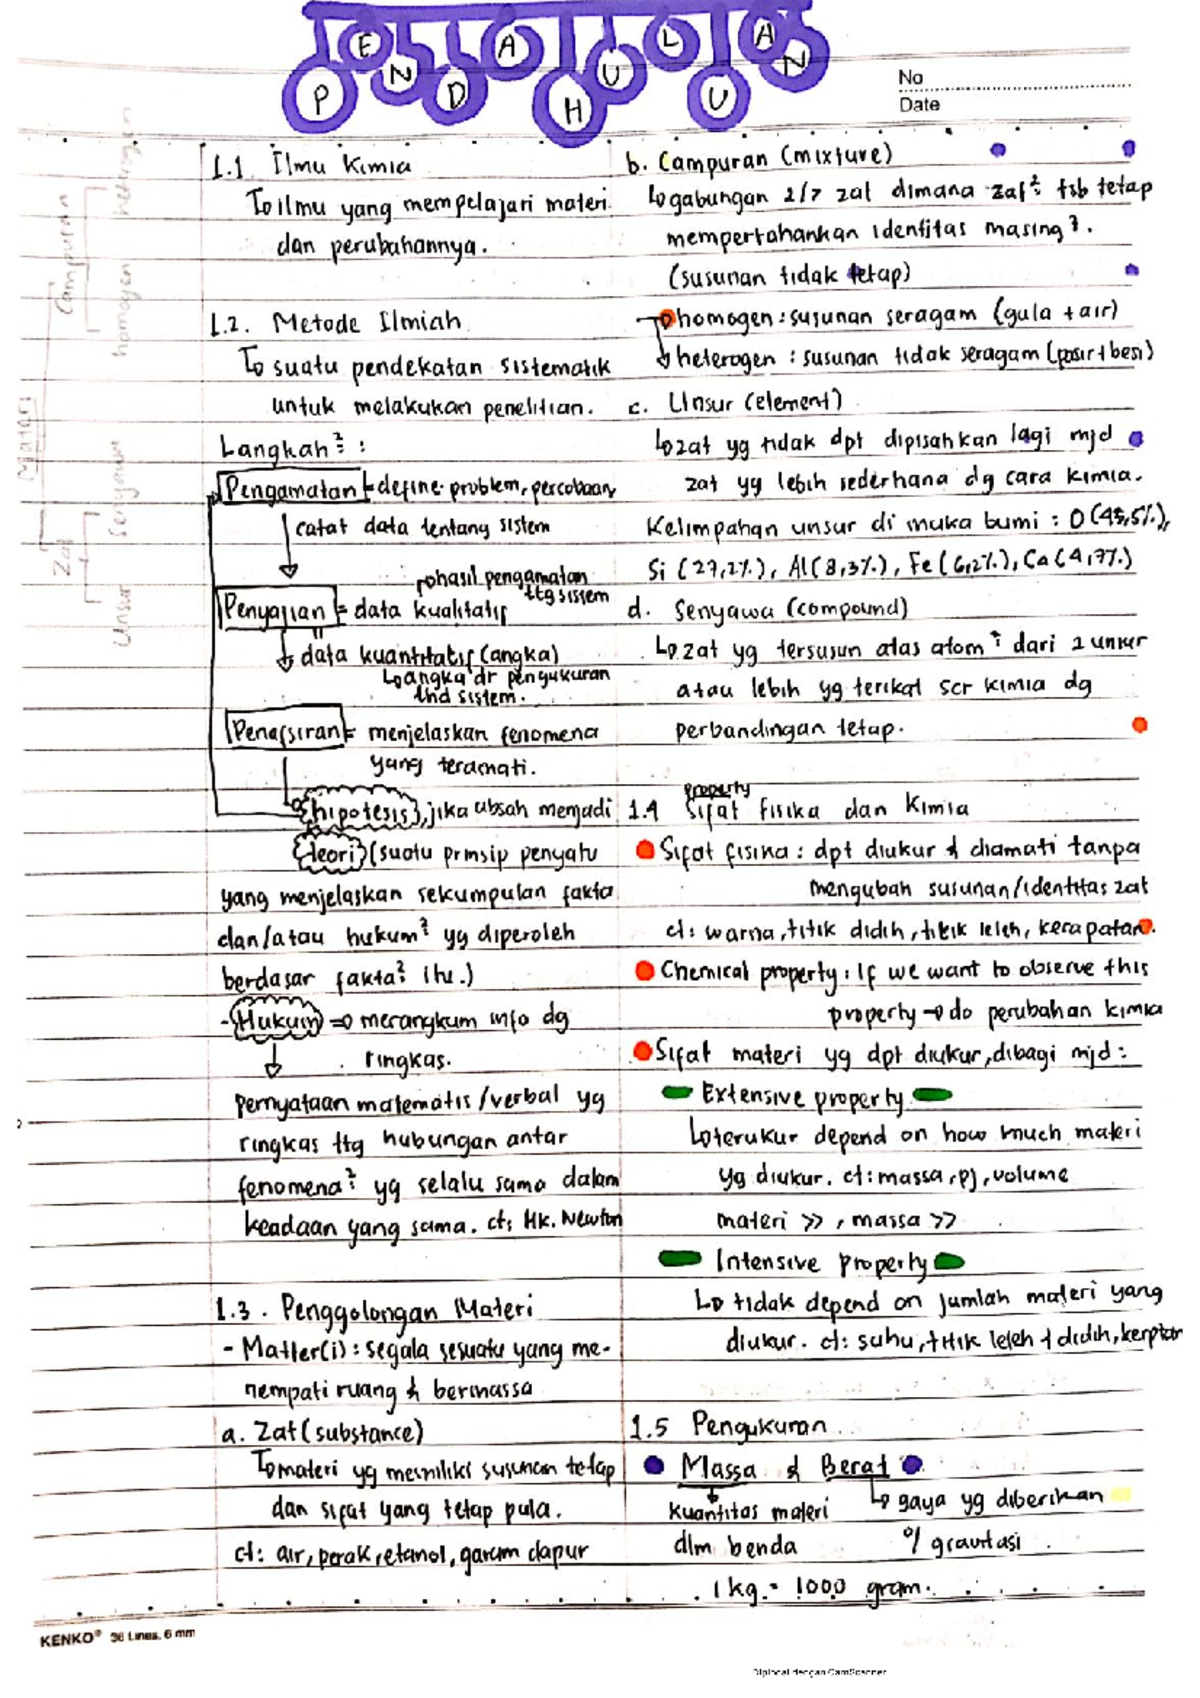 PENDAHULUAN
No
Date
1.1 Ilmu Kimia
↳ ilmu yang mempelajari materi
dan perubahannya.
1.2. Metode Ilmiah
↳ suatu pendekatan sistematik
untuk melakukan penelitian.
Langkah² :
Pengamatan = define problem, percobaan
catat data tentang sistem
Penyajian = data kualitatif
↳ hasil pengamatan
ttg sistem
data kuantitatif (angka)
↳ angka dr pengukuran
thd sistem.
Penafsiran = menjelaskan fenomena
yang teramati.
hipotesis, jika absah menjadi
teori (suatu prinsip penyatu
yang menjelaskan sekumpulan fakta
dan/atau hukum² yg diperoleh
berdasar fakta² itu.)
- Hukum => merangkum info dg
ringkas.
pernyataan matematis/verbal yg
ringkas ttg hubungan antar
fenomena² yg selalu sama dalam
keadaan yang sama. ct: Hk. Newton
1.3. Penggolongan Materi
- Matter(i) : segala sesuatu yang me-
nempati ruang & bermassa
a. Zat (substance)
↳ materi yg memiliki susunan tetap
dan sifat yang tetap pula.
ct: air, perak, etanol, garam dapur
b. Campuran (mixture)
↳ gabungan 2/> zat dimana zat² tsb tetap
mempertahankan identitas masing².
(susunan tidak tetap)
↳ homogen : susunan seragam (gula + air)
↳ heterogen : susunan tidak seragam (pasir + besi)
c. Unsur (element)
↳ zat yg tidak dpt dipisahkan lagi mjd
zat yg lebih sederhana dg cara kimia.
Kelimpahan unsur di muka bumi : O (45,5%),
Si (27,2%), Al (8,3%), Fe (6,2%), Ca (4,7%)
d. Senyawa (compound)
↳ zat yg tersusun atas atom² dari 2 unsur
atau lebih yg terikat scr kimia dg
perbandingan tetap.
property
1.4 Sifat fisika dan Kimia
Sifat fisika : dpt diukur & diamati tanpa
mengubah susunan/identitas zat
ct: warna, titik didih, titik leleh, kerapatan.
Chemical property : If we want to observe this
property → do perubahan kimia
Sifat materi yg dpt diukur, dibagi mjd :
Extensive property
↳ terukur depend on how much materi
yg diukur. ct: massa, pj, volume
materi >>, massa >>
Intensive property
↳ tidak depend on jumlah materi yang
diukur. ct: suhu, titik leleh + didih, kerptan
1.5 Pengukuran
Massa & Berat
kuantitas materi
dlm benda
↳ gaya yg diberikan
o/ gravitasi
1 kg = 1000 gram.
Materi
Campuran
heterogen
homogen
Zat
Senyawa
Unsur
KENKO® 36 Lines, 6 mm
Dipindai dengan CamScanner